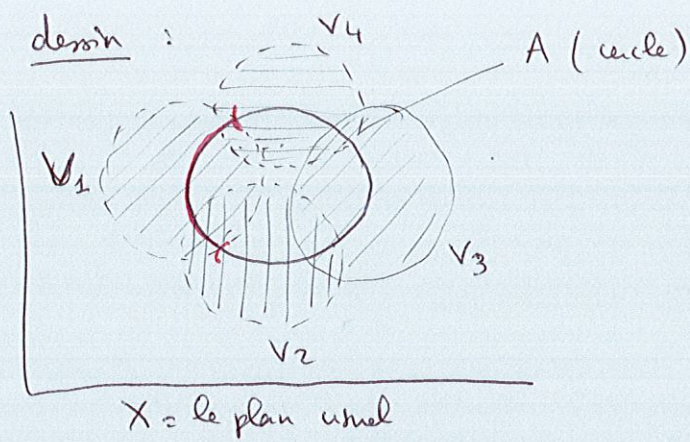 dessin :
V4
A ( cercle)
V1
V3
V2
X = le plan usuel